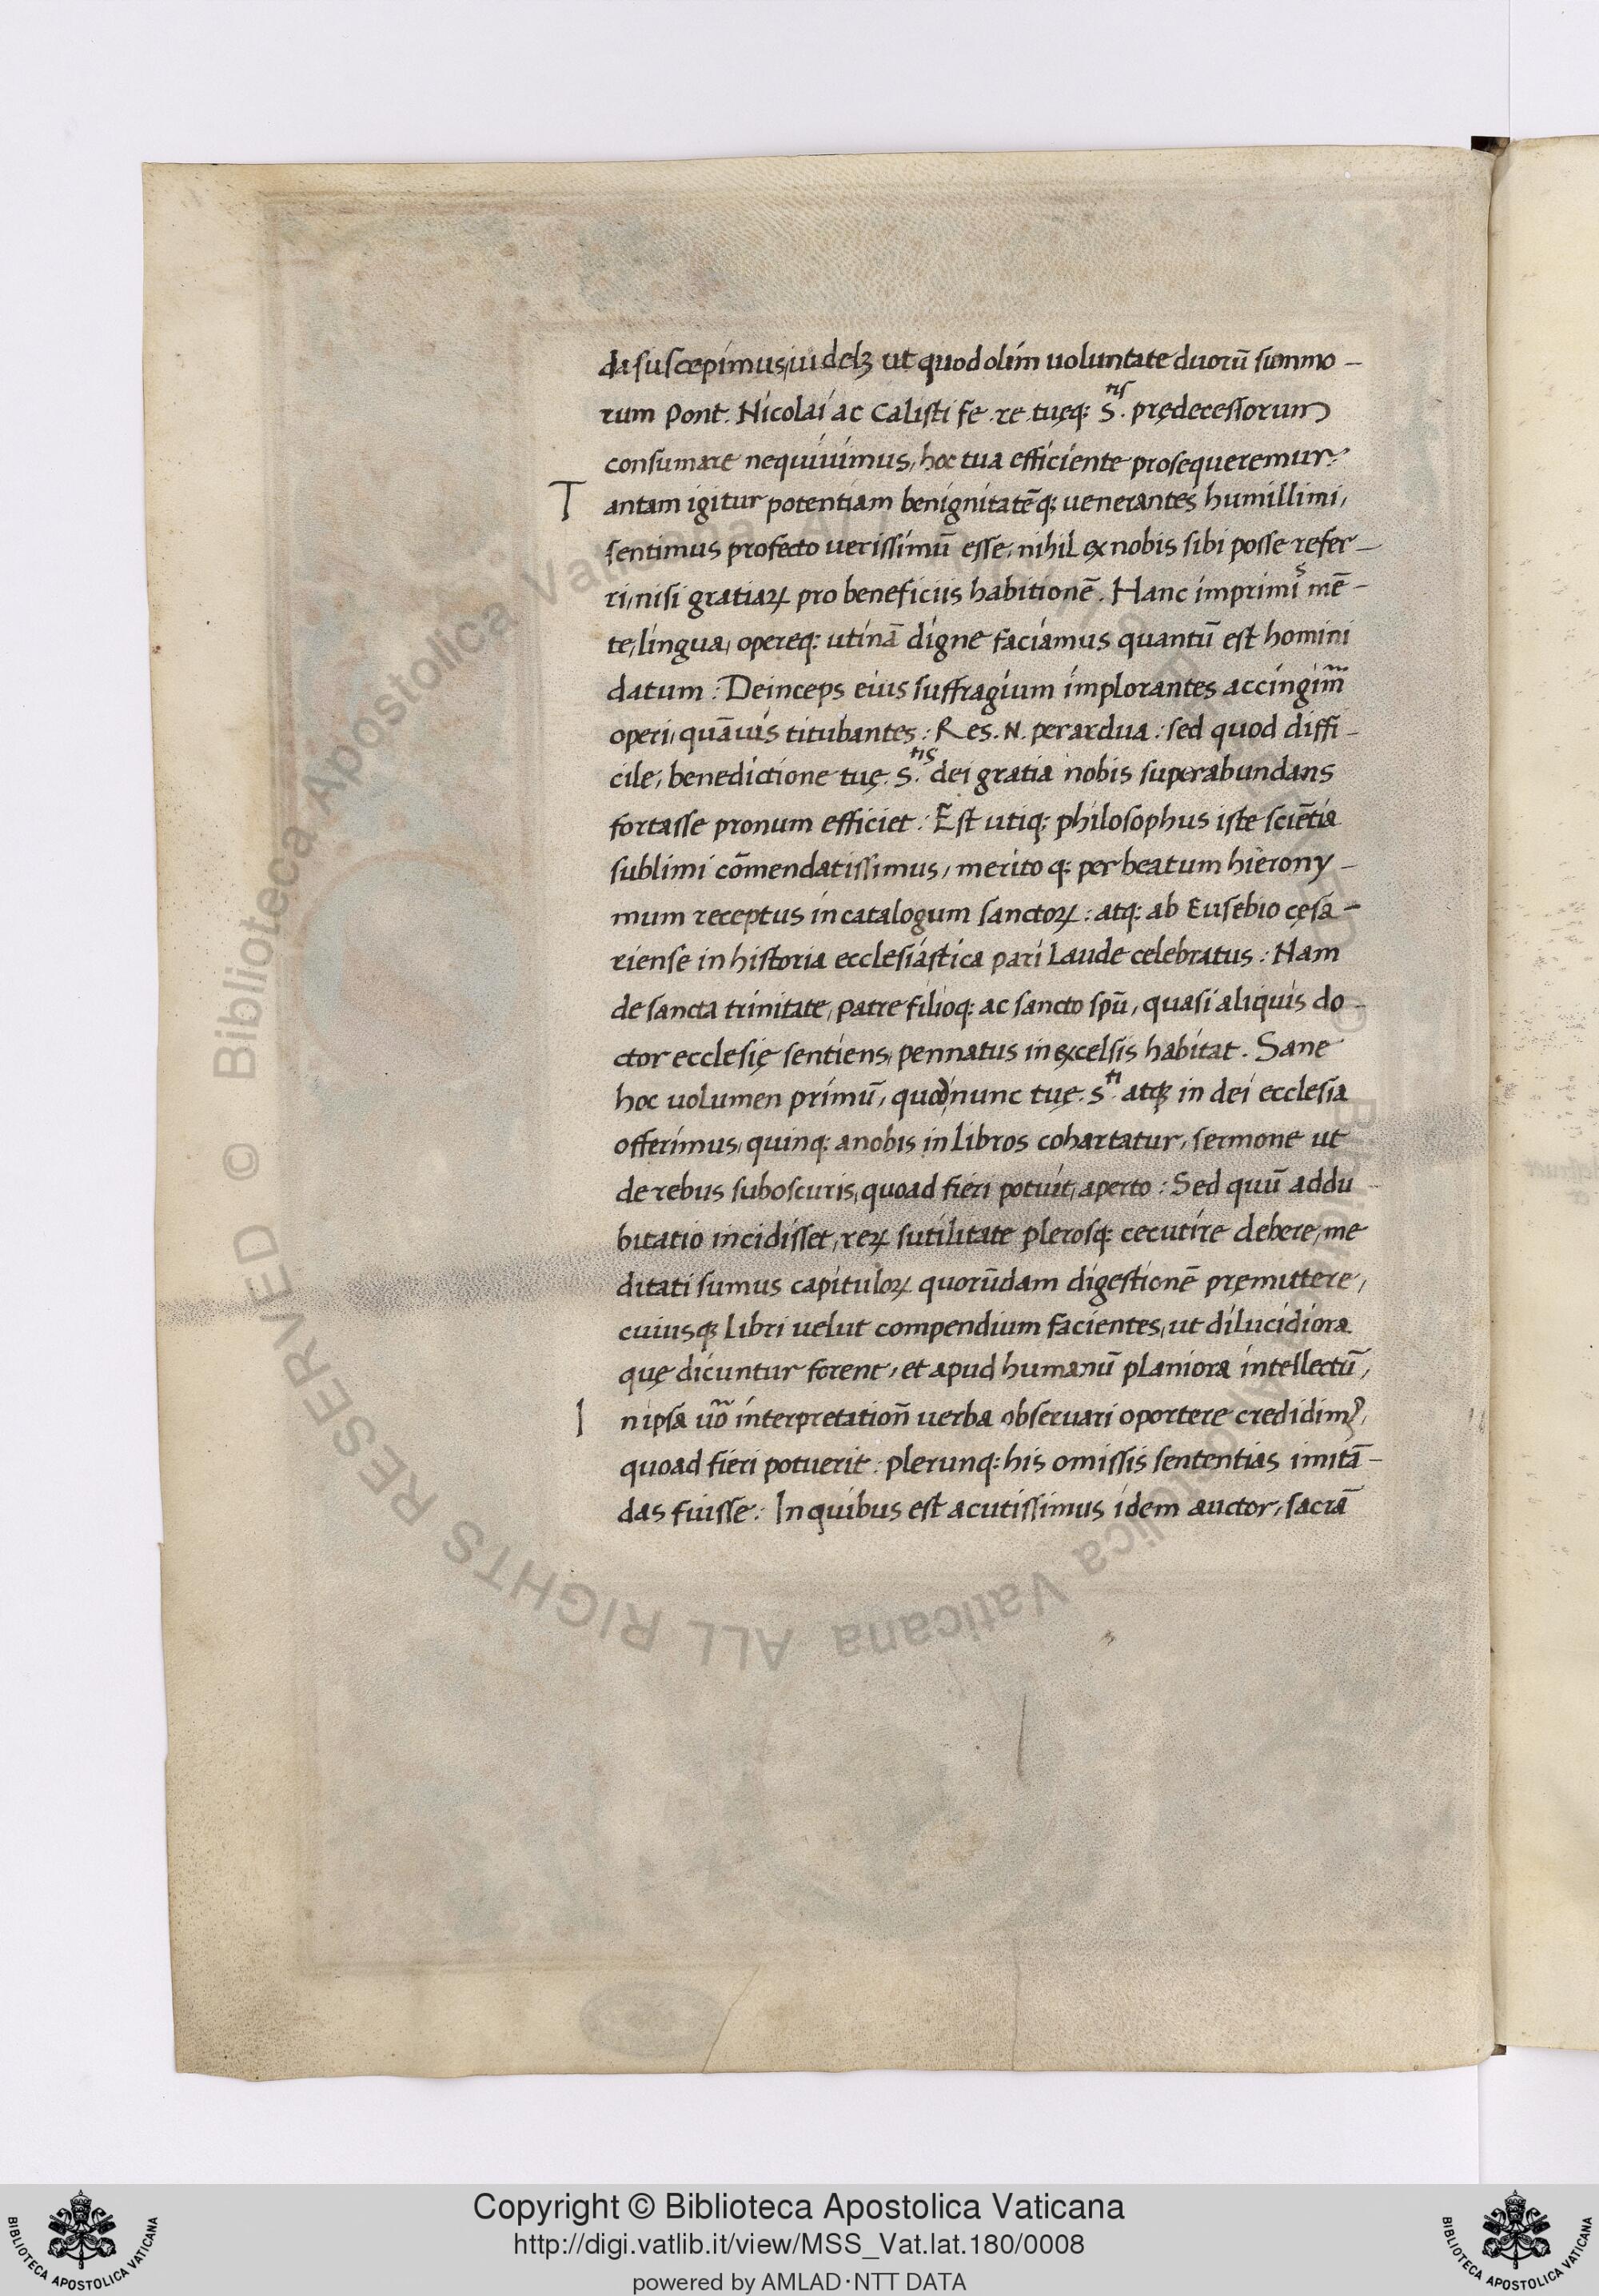 da suscepimus, uidelꝫ ut quod olim uoluntate duorū summo-
rum Pont. Nicolai ac Calisti fe. re. tuęq: S.tis prędecessorum
consumare nequiuimus, hoc tua efficiente prosequeremur.
Tantam igitur potentiam benignitatēq; uenerantes humillimi,
sentimus profecto uerissimū esse, nihil ex nobis sibi posse refer-
ri, nisi gratiaꝝ pro beneficiis habitionē. Hanc imprimis mē-
te, lingua, opereq: utinā digne faciamus quantū est homini
datum: Deinceps eius suffragium implorantes accingim̃
operi, quāuis titubantes: Res. N. perardua: sed quod diffi-
cile, benedictione tuę. S.tis dei gratia nobis superabundans
fortasse pronum efficiet: Est utiq; philosophus iste sciētia
sublimi cōmendatissimus, merito q: per beatum hierony-
mum receptus in catalogum sanctoꝝ: atq: ab Eusebio cęsa-
riense in historia ecclesiastica pari Laude celebratus: Nam
de sancta trinitate, patre filioq: ac sancto spū, quasi aliquis do-
ctor ecclesię sentiens, pennatus in excelsis habitat. Sane
hoc uolumen primū, quod nunc tuę. S.ti atqꝫ in dei ecclesia
offerimus, quinq: a nobis in Libros cohartatur, sermone ut
de rebus suboscuris, quoad fieri potuit, aperto: Sed quū addu
bitatio incidisset, reꝝ sutilitate plerosq: cecutire debere, me
ditati sumus capituloꝝ quorūdam digestionē pręmittere,
cuiusqꝫ Libri uelut compendium facientes, ut dilucidiora
quę dicuntur forent, et apud humanū planiora intellectū,
In ipsa uo᷈ interpretatioñ uerba obseruari oportere credidimꝰ,
quoad fieri potuerit: plerunq: his omissis sententias imitā-
das fuisse: In quibus est acutissimus idem auctor, sacrā
© Biblioteca Apostolica Vaticana ALL RIGHTS RESERVED
Copyright © Biblioteca Apostolica Vaticana
http://digi.vatlib.it/view/MSS_Vat.lat.180/0008
powered by AMLAD·NTT DATA
BIBLIOTECA APOSTOLICA VATICANA
BIBLIOTECA APOSTOLICA VATICANA